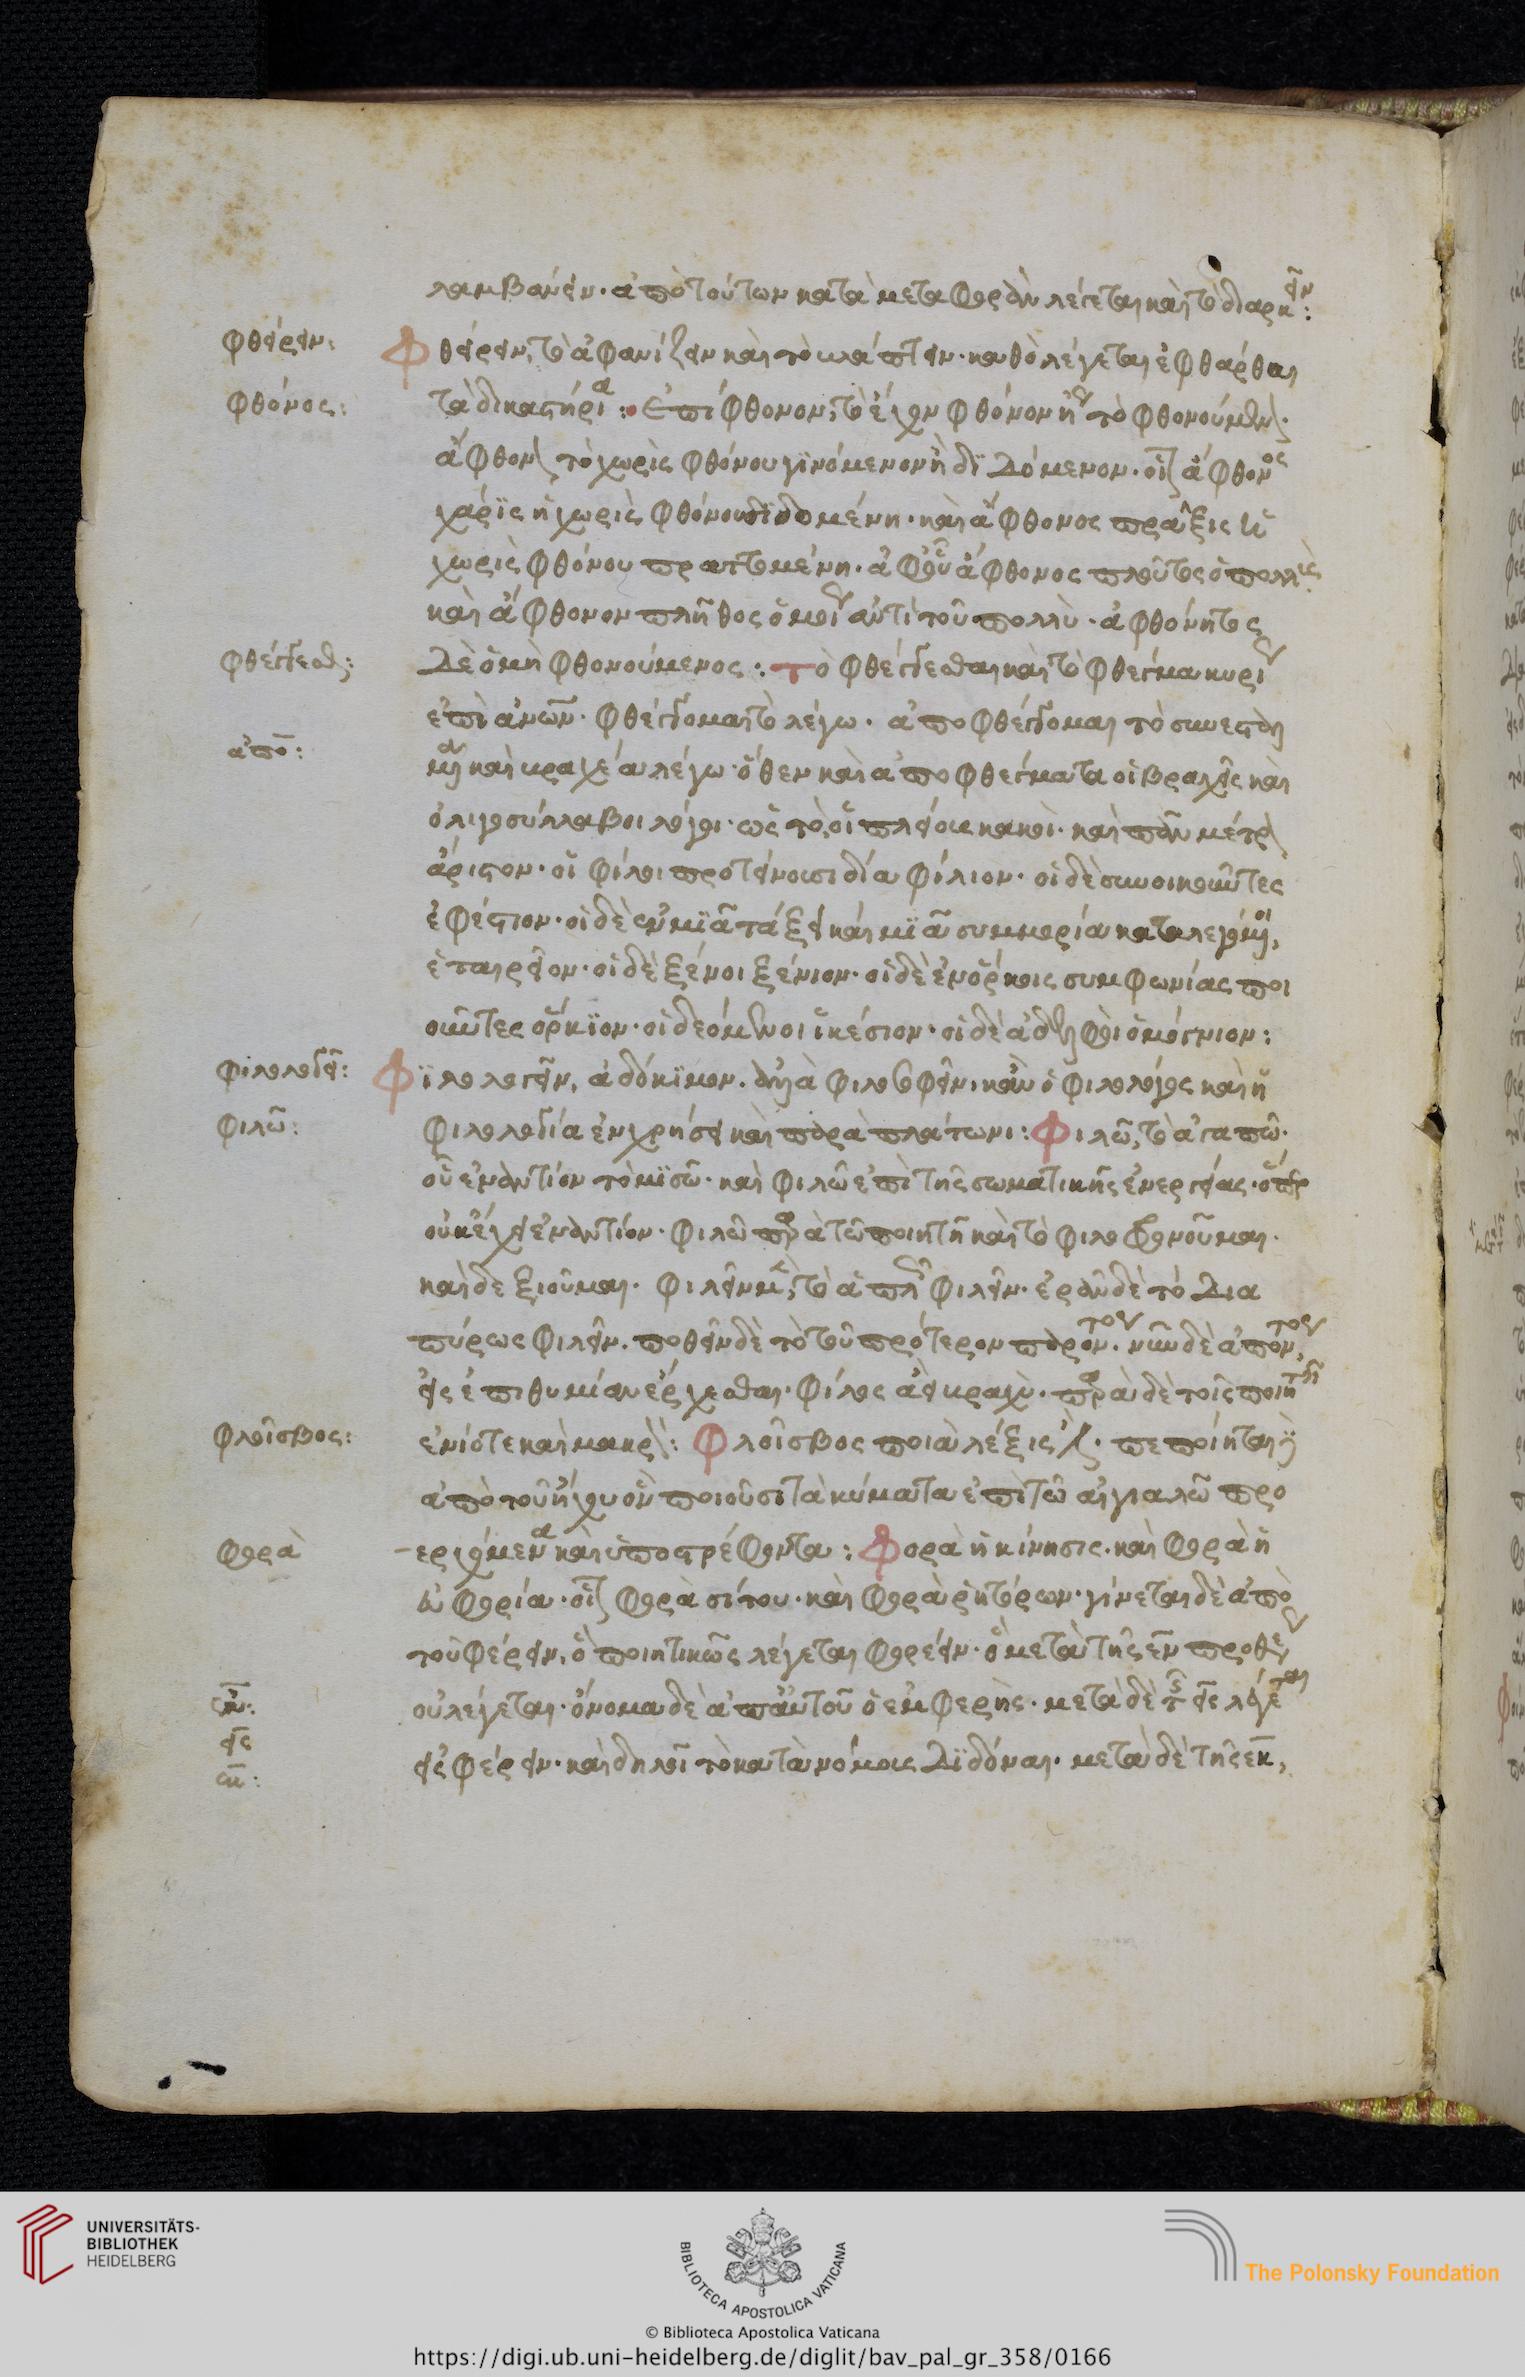 λαμβάνειν· ἀπὸ τούτων κατὰ μεταφορὰν λέγεται καὶ τὸ διαρκεῖν:
φθείρειν: Φθείρειν, τὸ ἀφανίζειν καὶ τὸ βλάπτειν· καθὸ λέγεται ἐφθάρθαι
φθόνος: τὰ δικαστήρια: Ἐπίφθονον, τὸ ἔχον φθόνον ἤγουν τὸ φθονούμενον·
ἄφθονον τὸ χωρὶς φθόνου γϊνόμενον ἢ δϊδόμενον· οἷον ἄφθονος
χάρϊς ἡ χωρὶς φθόνου δϊδομένη· καὶ ἄφθονος πρᾶξις ἡ
χωρὶς φθόνου πραττομένη· ἀφ' οὗ ἄφθονος πλοῦτος ὁ πολὺς
καὶ ἄφθονον πλῆθος ὁμοίως ἀντὶ τοῦ πολλὺ· ἀφθόνητος
φθέγγεσθαι: δὲ ὁ μὴ φθονούμενος: τὸ φθέγγεσθαι καὶ τὸ φθέγμα κυρίως
ἐπὶ ἀνων· φθέγγομαι τὸ λέγω· ἀποφθέγγομαι τὸ συνεσταλ
ἀπο: μένα καὶ βραχέα λέγω· ὅθεν καὶ ἀποφθέγματα οἱ βραχεῖς καὶ
ὀλιγοσύλλαβοι λόγοι· ὡς τὸ, οἱ πλείους κακοὶ· καὶ πᾶν μέτρον
ἄριστον· οἱ φίλοι προτείνουσι δία φίλιον· οἱ δὲ συνοικοῦντες
ἐφέστιον· οἱ δὲ ἐν μϊᾶ τάξει καὶ μϊᾶ συμμορία καταλεγόμενοι,
ἑταιρεῖον· οἱ δὲ ξένοι ξένιον· οἱ δὲ ἐν ὅρκοις συμφωνίας ποι
οῦντες ὅρκϊον· οἱ δεόμενοι ἱκέσιον· οἱ δὲ ἀδελφοὶ ὁμόγνιον:
φιλολογεῖν: Φϊλολογεῖν, ἀδόκϊμον. ἀλλὰ φιλοσοφεῖν· κἂν ὁ φιλόλογος καὶ ἡ
φιλῶ: φιλολογία ἐν χρήσει καὶ παρὰ πλάτωνι: Φιλῶ, τὸ ἀγαπῶ·
οὗ ἐναντίον τὸ μϊσῶ· καὶ φιλῶ ἐπὶ τῆς σωματικῆς ἐνεργείας· ὅπερ
οὐκ ἔχει ἐναντίον· φιλῶ παρὰ τῶ ποιητῆ καὶ τὸ φιλοφρονοῦμαι·
καὶ δεξιοῦμαι· φιλεῖν μὲν, τὸ ἁπλῶς φιλεῖν· ἐρᾶν δὲ τὸ δια
πύρως φιλεῖν· ποθεῖν δὲ τὸ τοῦ πρότερον παρόντος· νῦν δὲ ἀπόντος,
εἰς ἐπιθυμίαν ἔρχεσθαι· φίλος ἀεὶ βραχὺ· παρὰ δὲ τοῖς ποιηταῖς
φλοῖσβος: ἐνίοτε καὶ μακρὸν: Φλοῖσβος ποιὰ λέξις ἐστί· πεποίηται
ἀπὸ τοῦ ἤχου ὃν ποιοῦσι τὰ κύματα ἐπὶ τῶ αἰγιαλῶ προ
φορὰ ερχόμενα καὶ ὑποστρέφοντα: Φορὰ ἡ κίνησις· καὶ φορὰ ἡ
εὐφορία· οἷον φορὰ σίτου· καὶ φορὰ ῥητόρων· γίνεται δὲ ἀπὸ
τοῦ φέρειν, ὃ ποιητικῶς λέγεται φορέειν· ὃ μετὰ τῆς ἐν προθέσεως
ἐν: οὐ λέγεται· ὄνομα δὲ ἀπ' αὐτοῦ ὁ ἐμφερὴς· μετὰ δὲ τῆς εἰς λέγεται
εἰς εἰσφέρειν· καὶ δηλοῖ τὸ κατὰ νόμους δϊδόναι· μετὰ δὲ τῆς ἐκ,
ἐκ:
UNIVERSITÄTS-
BIBLIOTHEK
HEIDELBERG
BIBLIOTECA APOSTOLICA VATICANA
The Polonsky Foundation
© Biblioteca Apostolica Vaticana
https://digi.ub.uni-heidelberg.de/diglit/bav_pal_gr_358/0166